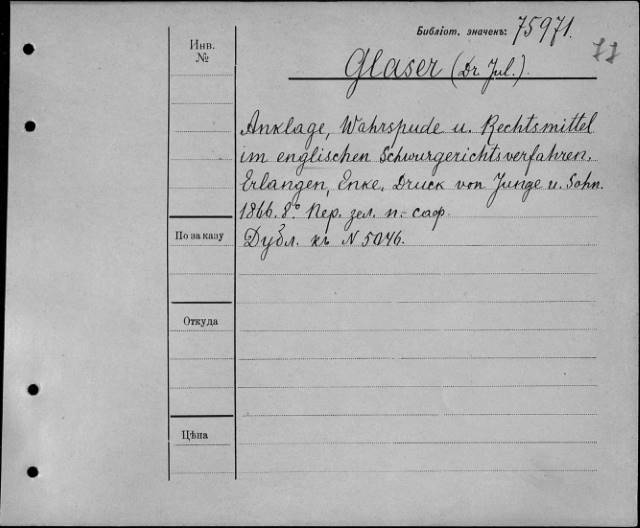 Библіот. значекъ: 75971.
77
Инв.
№
Glaser (Dr. Jul.).
Anklage, Wahrspude u. Rechtsmittel
im englischen Schwurgerichtsverfahren.
Erlangen, Enke, Druck von Junge u. Sohn.
1866. 8.° Пер. зел. п.-саф.
По заказу
Дубл. къ N 5046.
Откуда
Цѣна